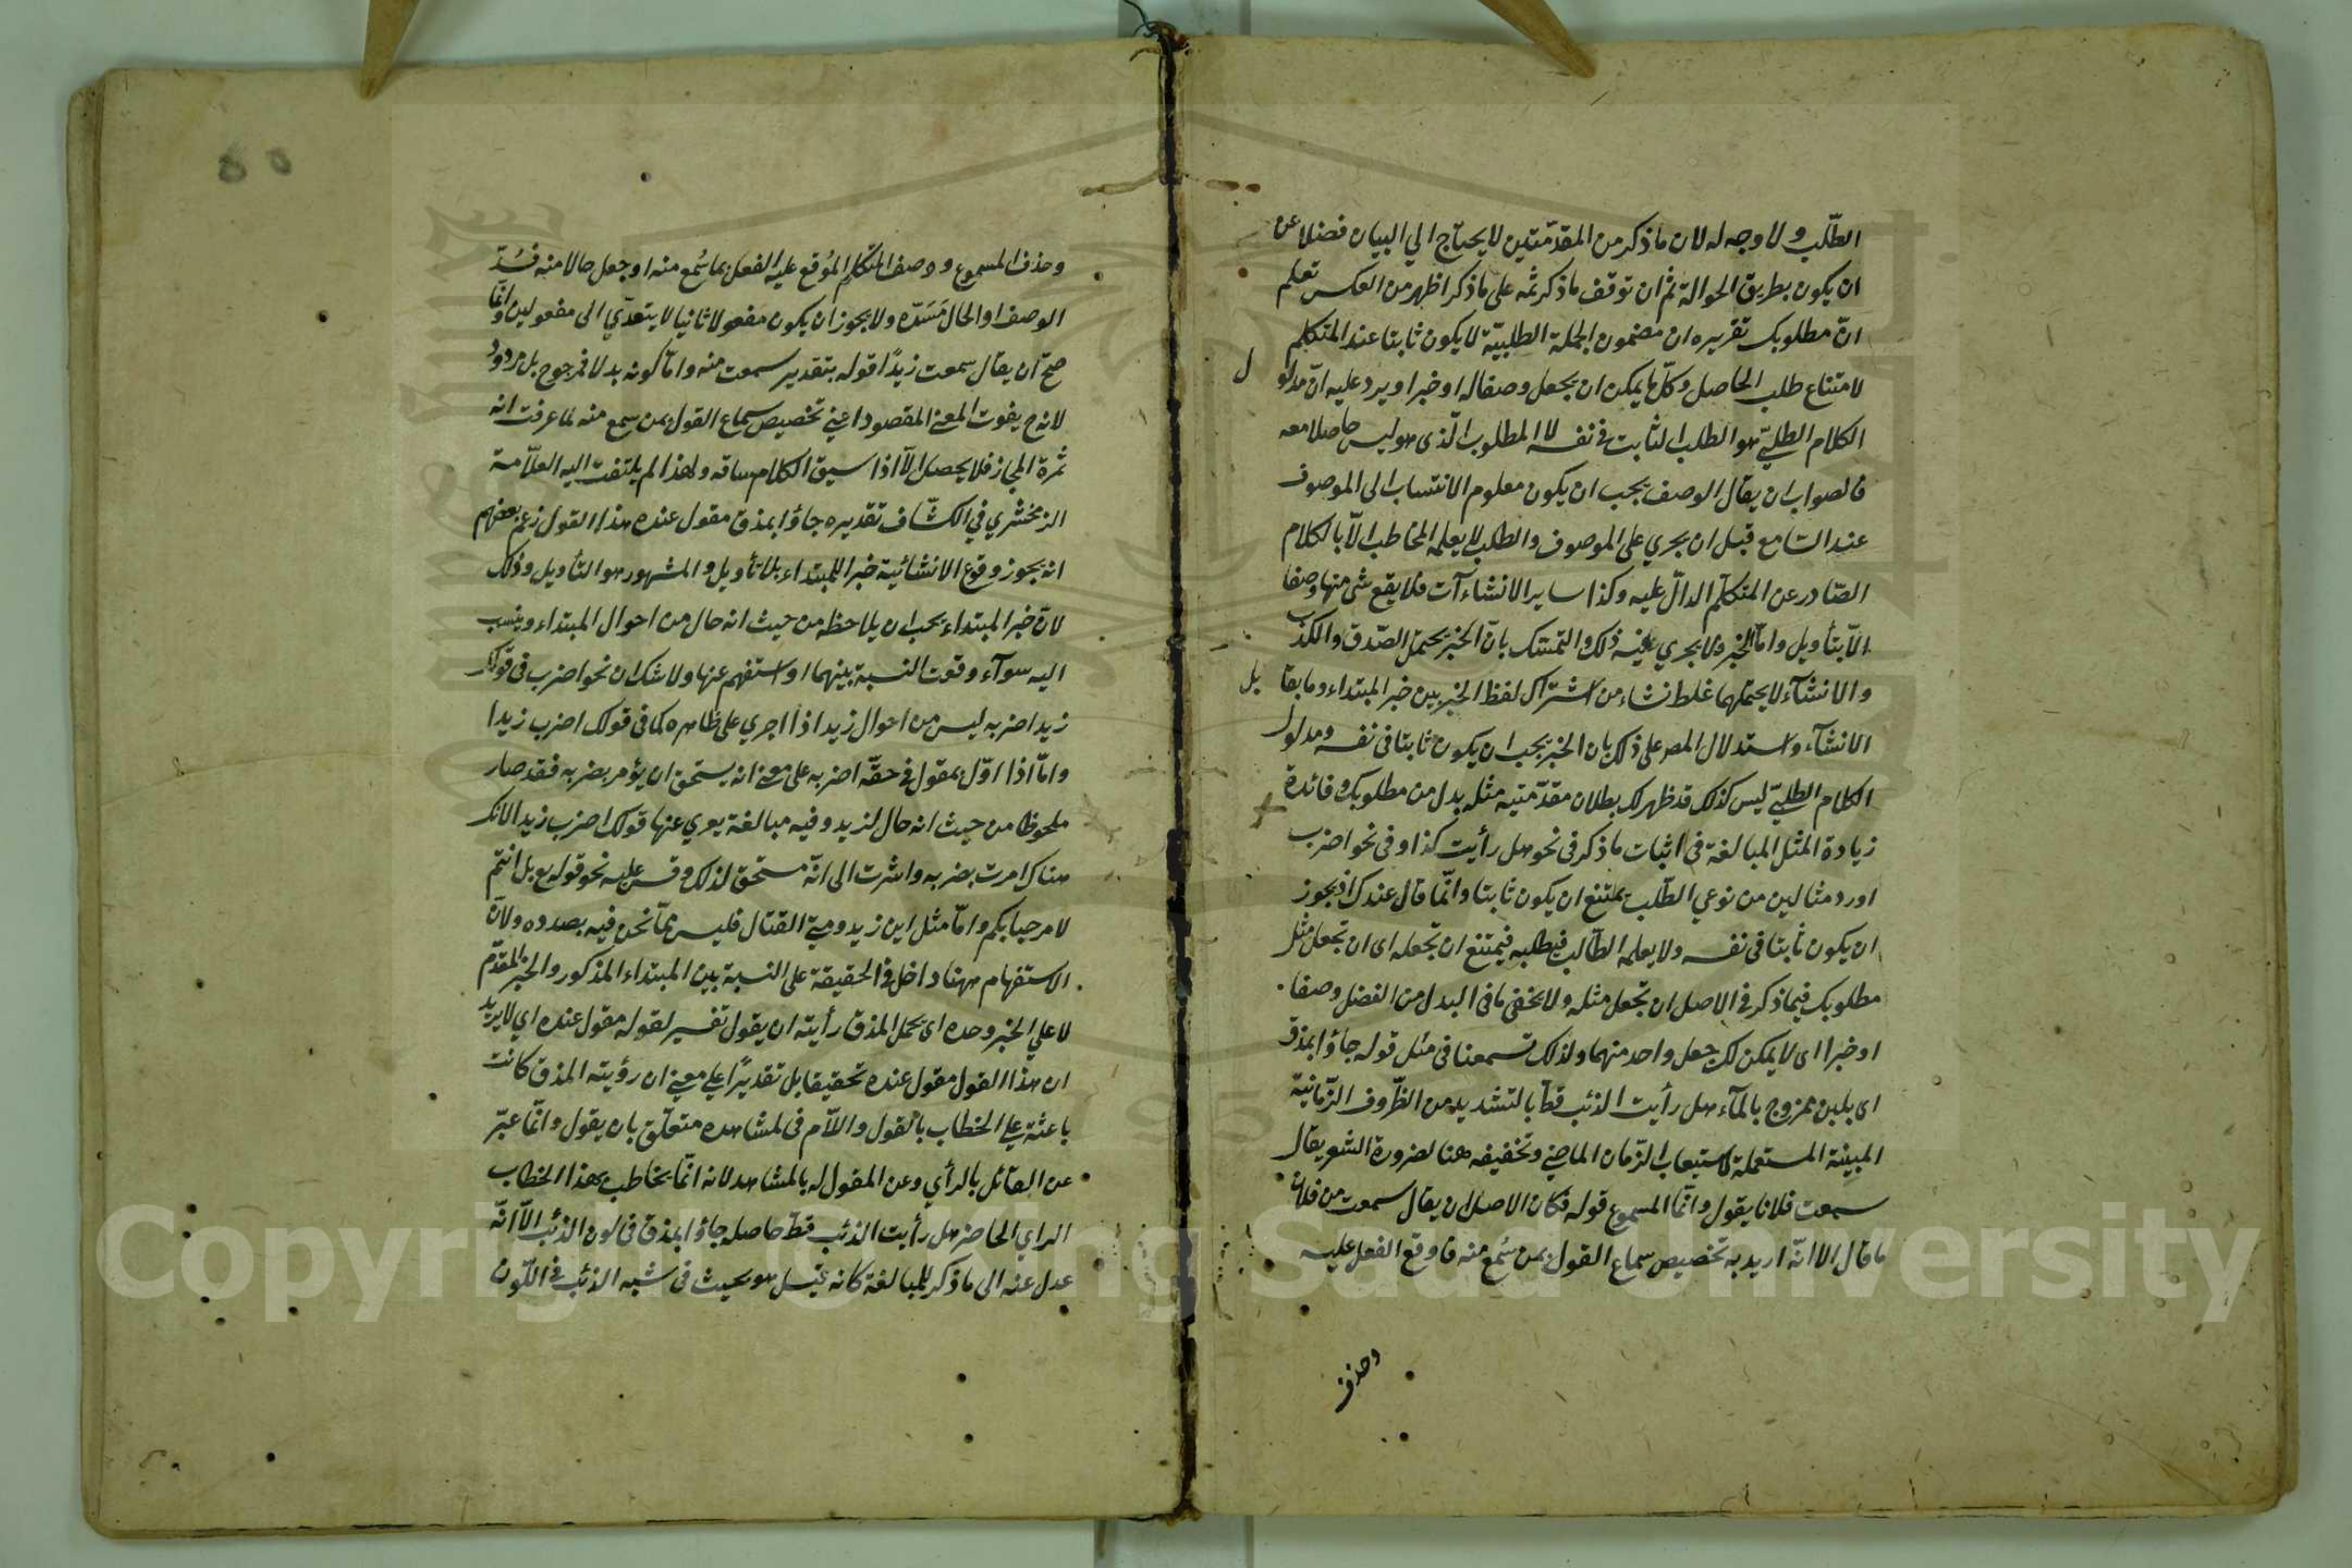 الطّلب ولا وجه له لان ماذكر من المقدّمتين لا يحتاج الي البيان فضلا عن
ان يكون بطريق الحوالة ثم ان توقف ماذكر ثمه على ماذكر اظهر من العكس تعلم
انّ مطلوبك تقريره ان مضمون الجملة الطلبيّة لا يكون ثابتا عند المتكلم
لامتناع طلب الحاصل وكلّ ما يمكن ان يجعل وصفا له او خبرا ويرد عليه انّ مدلو
ل
الكلام الطلبيّ هو الطلب الثابت في نفسه لا المطلوب الّذى هو ليس حاصلا معه
فالصواب ان يقال الوصف يجب ان يكون معلوم الانتساب الى الموصوف
عند السّامع قبل ان يجري على الموصوف والطلب لا يعلمه المخاطب الّا بالكلام
الصّادر عن المتكلّم الدالّ عليه وكذا ساير الانشاءآت فلا يقع شئ منها وصفا
الّا بتأويل وامّا الخبر فلا يجري فيه ذلك والتمسّك بانّ الخبر يحتمل الصّدق والكذب
والانشآء لا يحتملهما غلط نشاء من اشتراك لفظ الخبر بين خبر المبتداء وما يقا
بل
الانشآء واستدلال المص على ذلك بان الخبر يجب ان يكون ثابتا في نفسه ومدلول
الكلام الطلبيّ ليس كذلك قد ظهر لك بطلان مقدّمتيه مثله بدل من مطلوبك وفائدة
زيادة المثل المبالغة في اثبات ماذكر في نحو هل رأيت كذا وفي نحو اضرب
اورد مثالين من نوعي الطّلب يمتنع ان يكون ثابتا وانّما قال عندك اذ يجوز
ان يكون ثابتا في نفسه ولا يعلمه الطّالب فيطلبه فيمتنع ان تجعله اى ان تجعل مثل
مطلوبك فيماذكر في الاصل ان تجعل مثله ولا يخفى مافي البدل من الفضل وصفا
او خبرا اى لا يمكن لك جعل واحد منهما ولذلك تسمعنا في مثل قوله جاؤا بمذق
اى بلبن ممزوج بالمآء هل رأيت الذئب قطّ بالتشديد من الظّروف الزّمانيّة
المبينة المستعملة لاستيعاب الزّمان الماضي وتخفيفه هنا لضرورة الشعر يقال
سمعت فلانا يقول وانّما المسموع قوله فكان الاصل ان يقال سمعت من فلان
ماقال الا انّه اريد به تخصيص سماع القول بمن سُمع منه فاوقع الفعل عليه
وحذف
وحذف المسموع ووصف المتكلم المُوقع عليه الفعل بما سُمع منه او جعل حالا منه فسُدّ
الوصف او الحال مَسَدّه ولا يجوز ان يكون مفعولا ثانيا لا يتعدّي الى مفعولين وانّما
صحّ ان يقال سمعت زيدًا قوله بتقدير سمعت منه وامّا كونه بدلا فمرجوح بل مردود
لانه ح يفوت المعنى المقصود اعني تخصيص سماع القول بمن سمع منه لما عرفت انه
ثمرة المجاز فلا يحصل الّا اذا سيق الكلام مساقه ولهذا لم يلتفت اليه العلّامة
الزمخشري في الكشّاف تقديره جاؤا بمذق مقول عنده هذا القول زعم بعضهم
انه يجوز وقوع الانشائية خبرا للمبتداء بلا تأويل والمشهور هو التأويل وذلك
لانّ خبر المبتداء يجب ان يلاحظه من حيث انه حال من احوال المبتداء وينسب
اليه سوآء وقوت النسبة بينهما او استفهم عنها ولا شك ان نحو اضرب في قولك
زيد اضربه ليس من احوال زيد اذا اجري على ظاهره كما في قولك اضرب زيدا
وامّا اذا اوّل بمقول في حقّه اضربه على معنى انه يستحق ان يؤمر بضربه فقد صار
ملحوظا من حيث انه حال لزيد وفيه مبالغة يعري عنها قولك اضرب زيدا لانك
هناك امرت بضربه واشرت الى انّه مستحق لذلك وقس عليه نحو قوله تع بل انتم
لا مرحبا بكم وامّا مثل اين زيد ومتى القتال فليس ممّا نحن فيه بصدده ولانّ
الاستفهام ههنا داخل في الحقيقة على النسبة بين المبتداء المذكور والخبر المقدّم
لا علي الخبر وحده اى يحمل المذق رأيته ان يقول تفسير لقوله مقول عنده اي لا يريد
ان هذا القول مقول عنده تحقيقا بل تقديرًا علي معنى ان رؤيته المذق كانت
باعثة علي الخطاب بالقول واللّام في لمشاهده متعلّق بان يقول وانّما عبّر
عن القائل بالرأي وعن المقول له بالمشاهد لانه انّما يخاطب بهذا الخطاب
الراي الحاضر هل رأيت الذئب قطّ حاصله جاؤا بمذق في لون الذئب الّا انّه
عدل عنه الى ماذكر للمبالغة كانه قيل هو بحيث في شبه الذئب في اللّون
Copyright © King Saud University